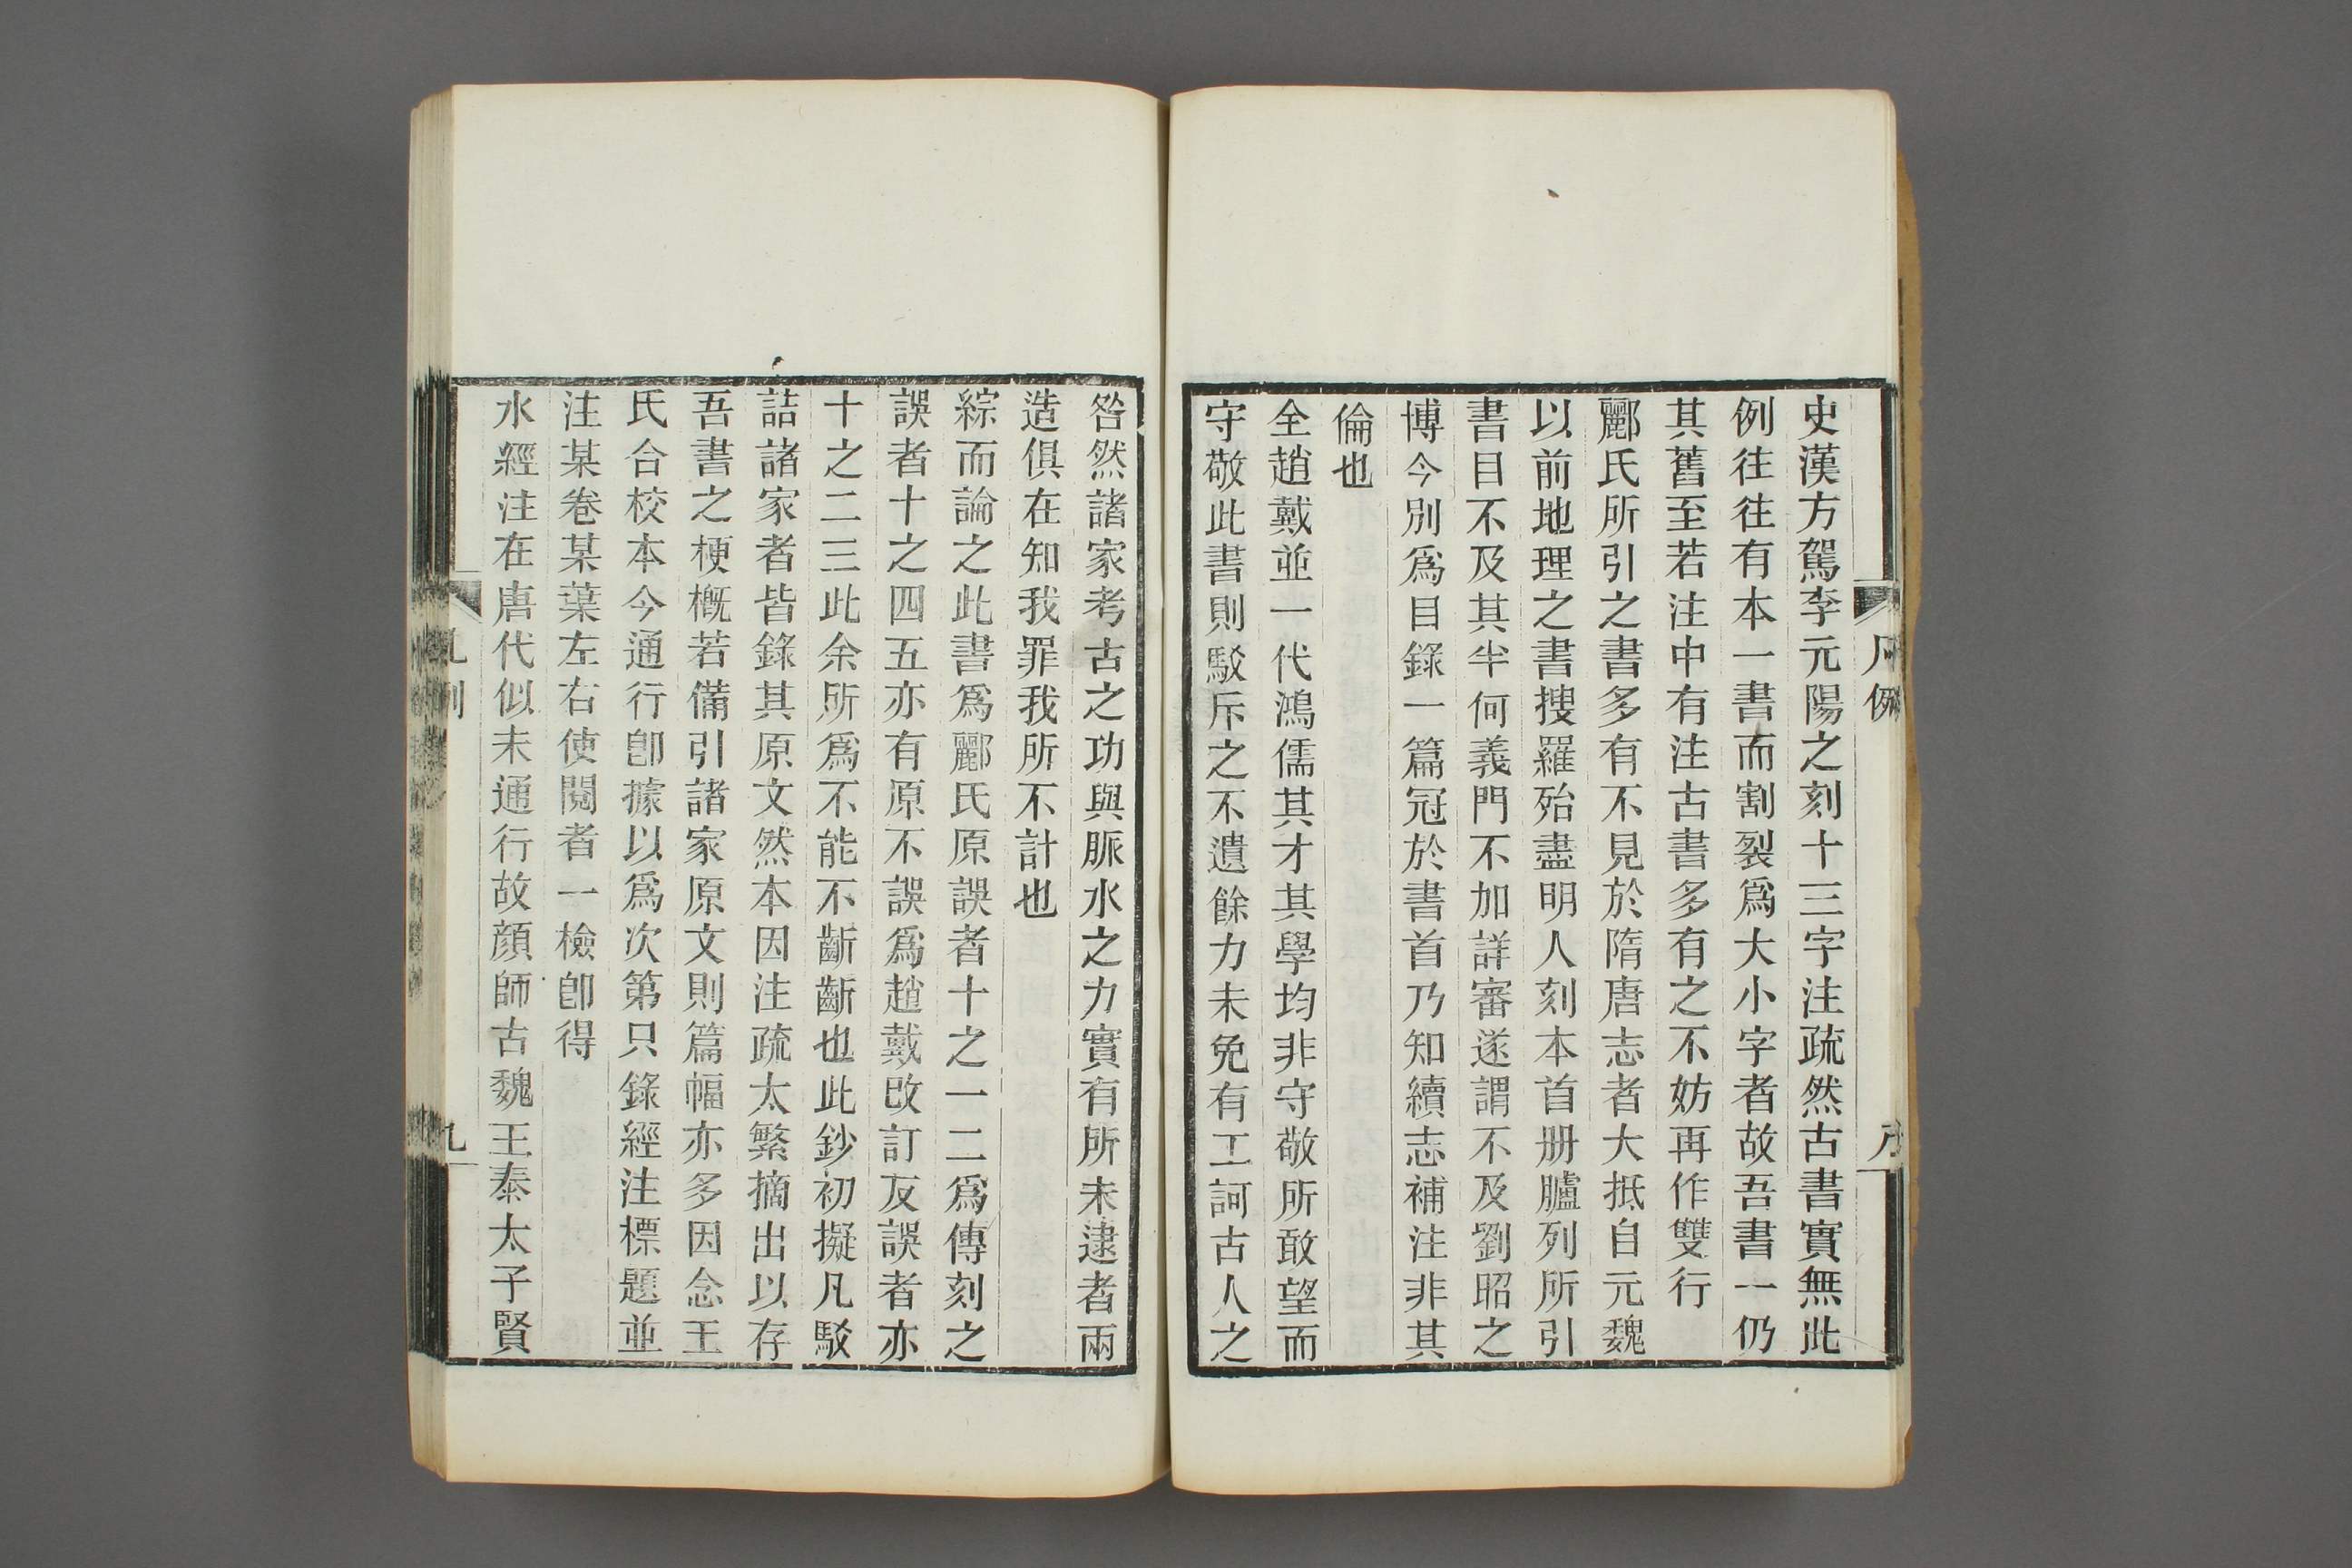 凡例
史漢方駕李元陽之刻十三字注疏然古書實無此
例往往有本一書而割裂爲大小字者故吾書一仍
其舊至若注中有注古書多有之不妨再作雙行
酈氏所引之書多有不見於隋唐志者大抵自元魏
以前地理之書搜羅殆盡明人刻本首册臚列所引
書目不及其半何義門不加詳審遂謂不及劉昭之
博今別爲目錄一篇冠於書首乃知續志補注非其
倫也
全趙戴並一代鴻儒其才其學均非守敬所敢望而
守敬此書則駁斥之不遺餘力未免有工訶古人之
咎然諸家考古之功與脈水之力實有所未逮者兩
造俱在知我罪我所不計也
綜而論之此書爲酈氏原誤者十之一二爲傳刻之
誤者十之四五亦有原不誤爲趙戴改訂反誤者亦
十之二三此余所爲不能不齗齗也此鈔初擬凡駁
詰諸家者皆錄其原文然本因注疏太繁摘出以存
吾書之梗槪若備引諸家原文則篇幅亦多因念王
氏合校本今通行卽據以爲次第只錄經注標題並
注某卷某葉左右使閱者一檢卽得
水經注在唐代似未通行故顏師古魏王泰太子賢